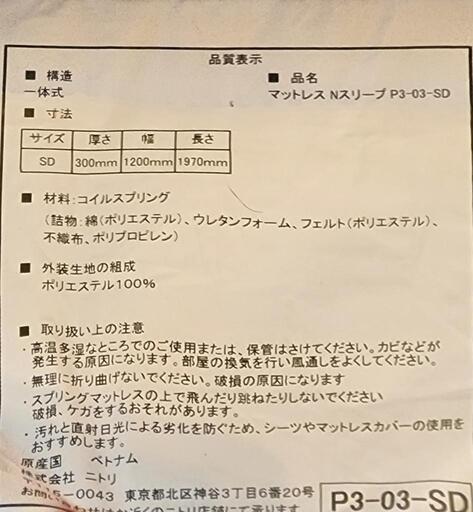 品質表示
■ 構造
一体式
■ 品名
マットレス Nスリープ P3-03-SD
■ 寸法
サイズ 厚さ 幅 長さ
SD 300mm 1200mm 1970mm
■ 材料：コイルスプリング
（詰物：綿（ポリエステル）、ウレタンフォーム、フェルト（ポリエステル）、
不織布、ポリプロピレン）
■ 外装生地の組成
ポリエステル100%
■ 取り扱い上の注意
・高温多湿なところでのご使用または、保管はさけてください。カビなどが
発生する原因になります。部屋の換気を行い風通しをよくしてください。
・無理に折り曲げないでください。破損の原因になります
・スプリングマットレスの上で飛んだり跳ねたりしないでください
破損、ケガをするおそれがあります。
・汚れと直射日光による劣化を防ぐため、シーツやマットレスカバーの使用を
おすすめします。
原産国 ベトナム
株式会社 ニトリ
5-0043 東京都北区神谷3丁目6番20号
は近くのニトリ店舗にて承ります
P3-03-SD